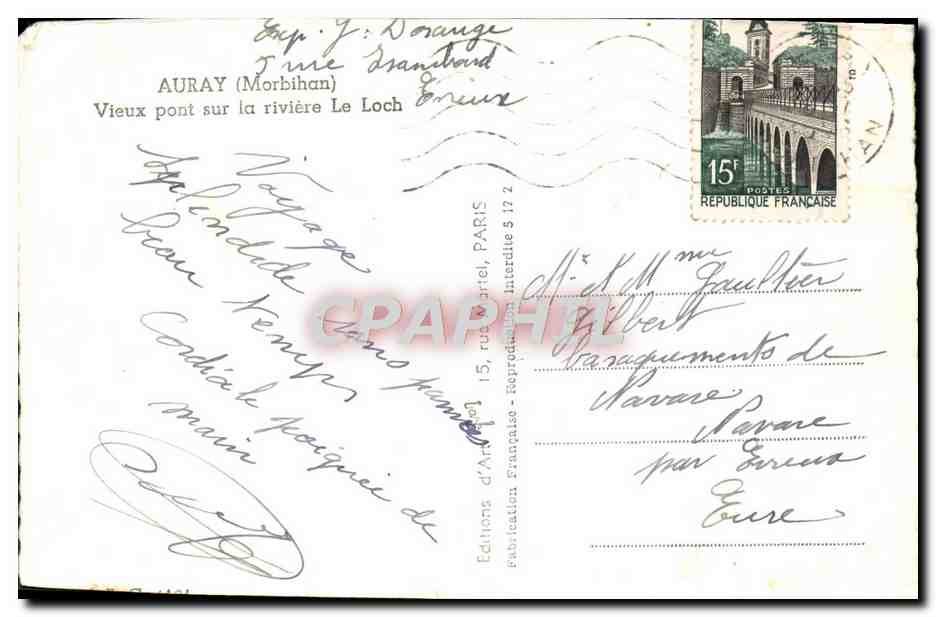 Exp. J. Dorange
5 rue Isambard
Evreux
AURAY (Morbihan)
Vieux pont sur la rivière Le Loch
Voyage
splendide sans pannes
beau temps
Cordiale poignée de
main
Editions d'Art 15, rue Martel, PARIS
Fabrication Française - Reproduction Interdite 5 12 2
15F
POSTES
REPUBLIQUE FRANÇAISE
Mr et Mme Gaultier
Gilbert
baraquements de
Navare
Navare
par Evreux
Eure
CPAPHIL